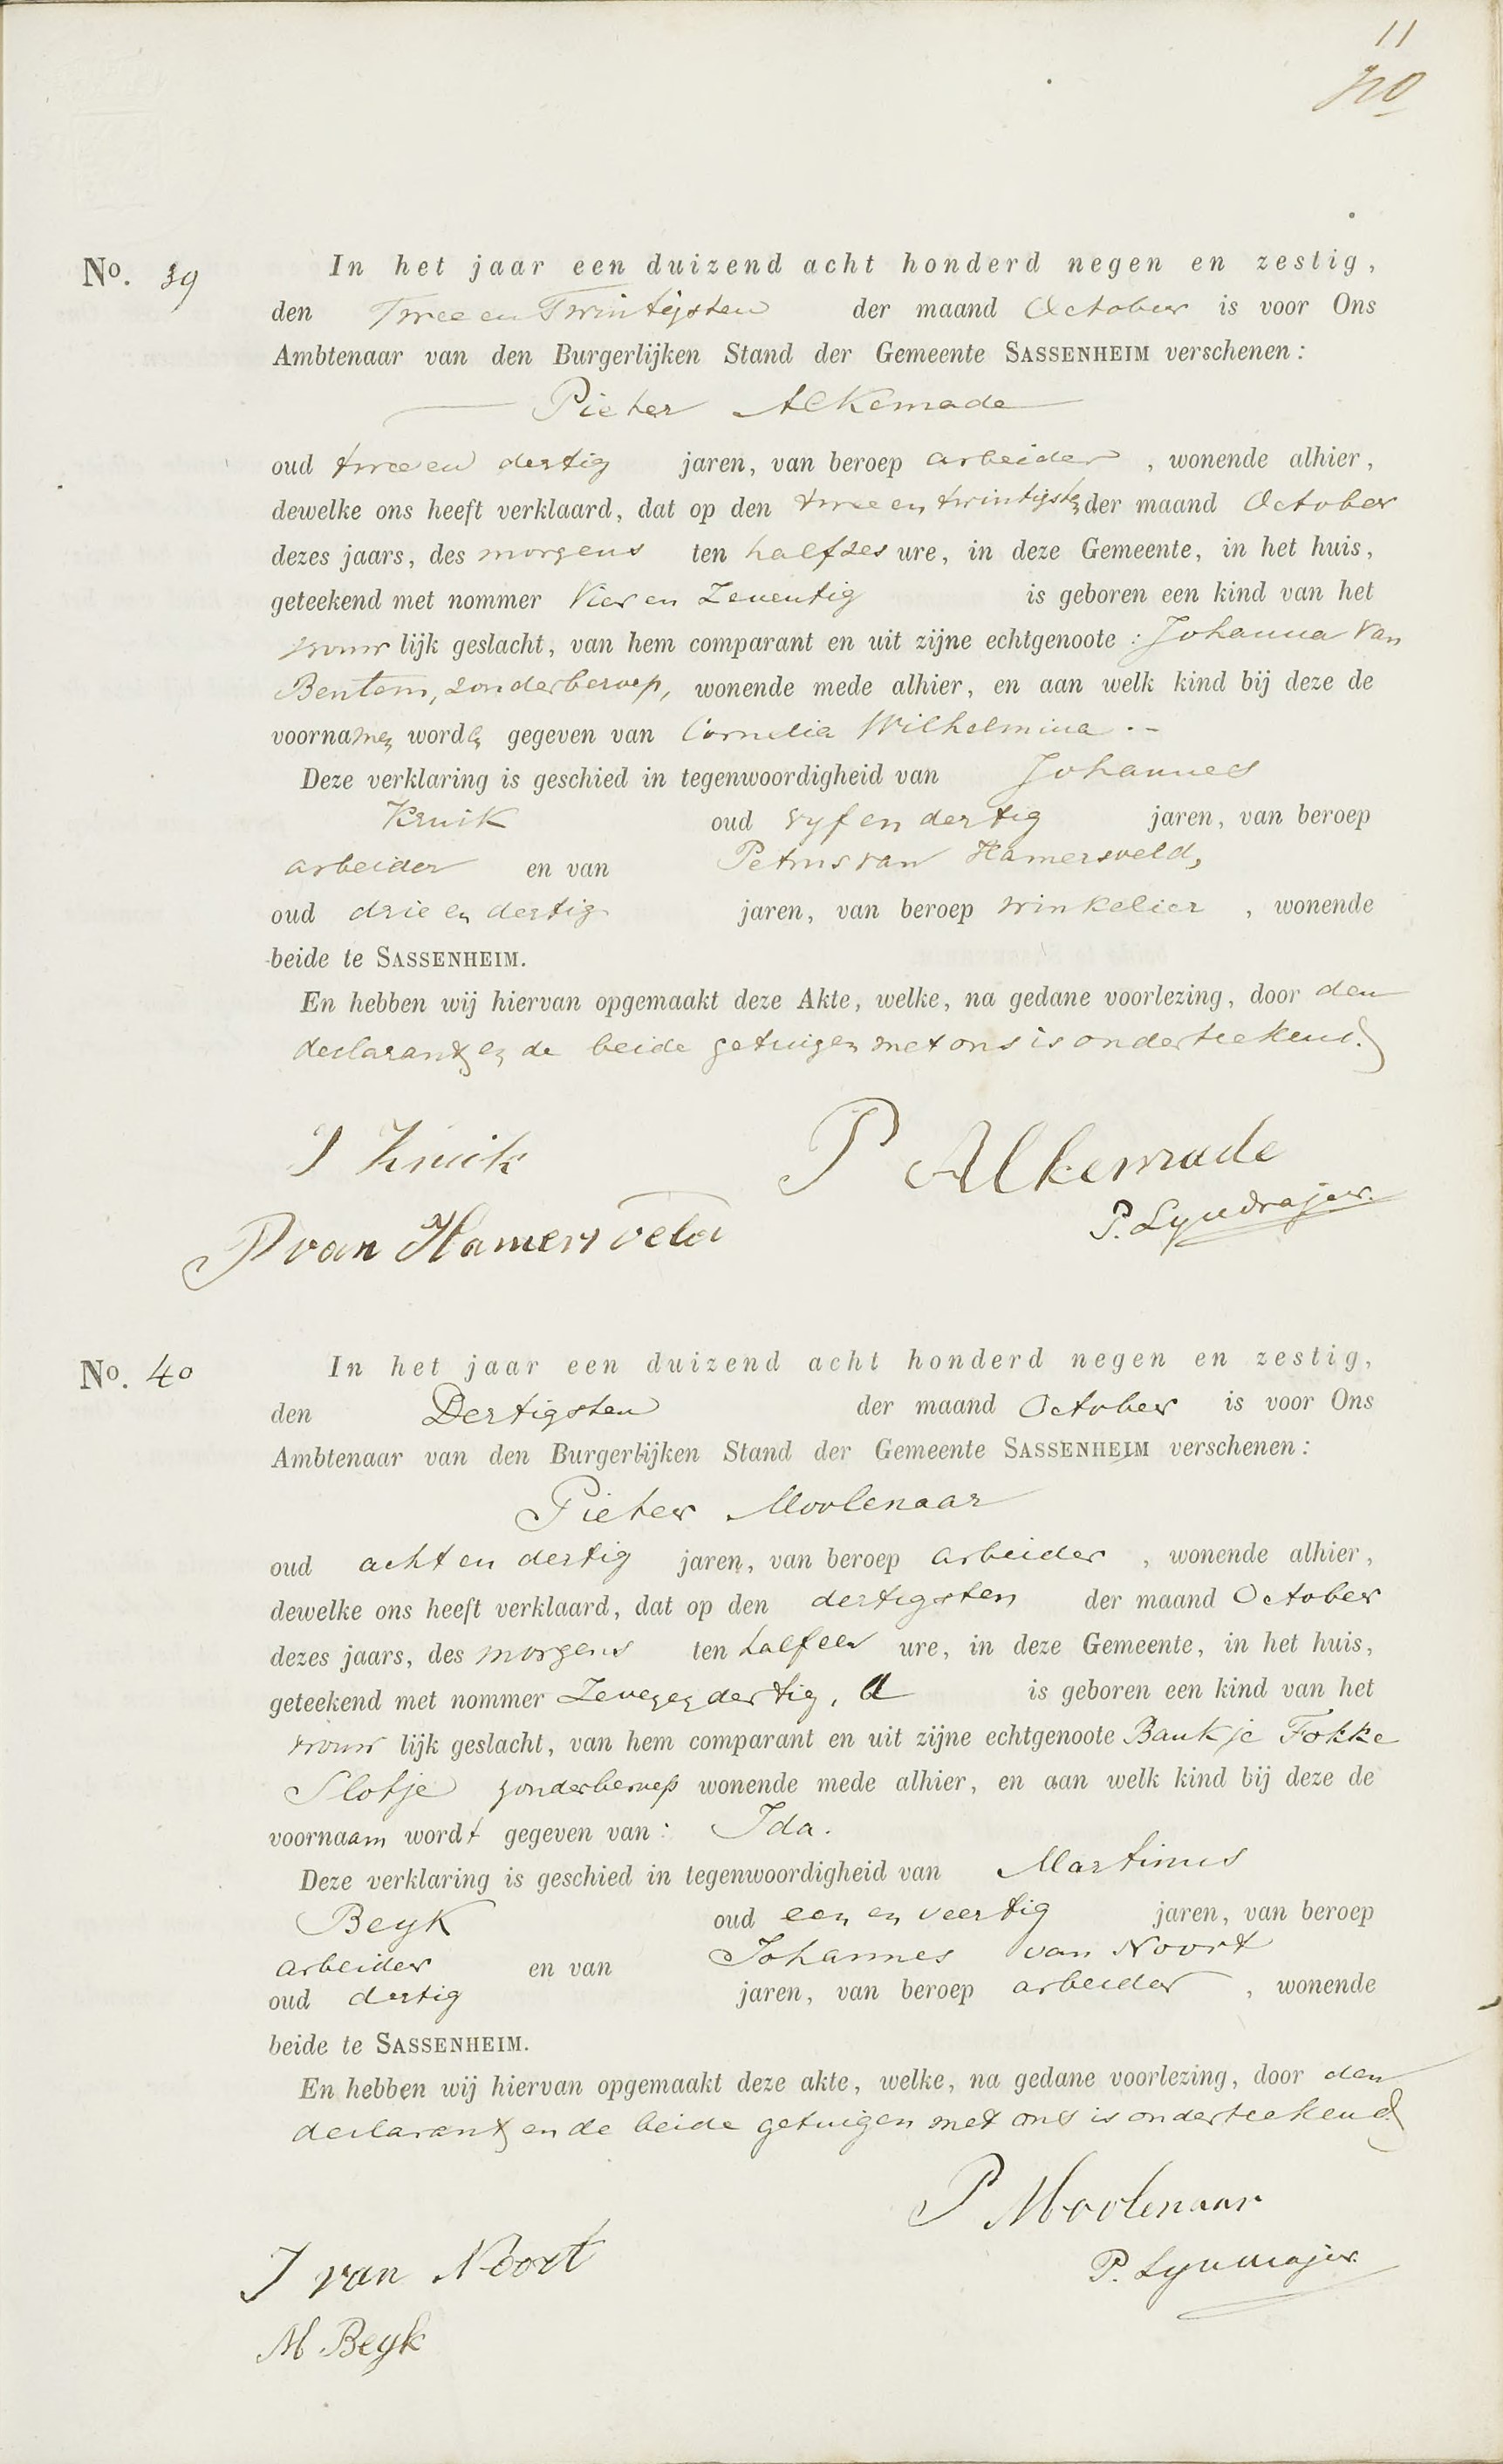 11
No. 39
In het jaar een duizend acht honderd negen en zestig,
den Twee en Twintigsten der maand October is voor Ons
Ambtenaar van den Burgerlijken Stand der Gemeente SASSENHEIM verschenen:
Pieter Alkemade
oud twee en dertig jaren, van beroep arbeider, wonende alhier,
dewelke ons heeft verklaard, dat op den twee en twintigsten der maand October
dezes jaars, des morgens ten half zes ure, in deze Gemeente, in het huis,
geteekend met nommer Vier en Zeventig is geboren een kind van het
vrouwlijk geslacht, van hem comparant en uit zijne echtgenoote: Johanna van
Bentem, zonder beroep, wonende mede alhier, en aan welk kind bij deze de
voornamen worden gegeven van Cornelia Wilhelmina.-
Deze verklaring is geschied in tegenwoordigheid van Johannes
Kruik oud vyf en dertig jaren, van beroep
arbeider en van Petrus van Hamersveld,
oud drie en dertig jaren, van beroep winkelier, wonende
beide te SASSENHEIM.
En hebben wij hiervan opgemaakt deze Akte, welke, na gedane voorlezing, door den
declarant en de beide getuigen met ons is onderteekend.
J Kruik P Alkemade
P van Hamersveld
No. 40
In het jaar een duizend acht honderd negen en zestig,
den Dertigsten der maand October is voor Ons
Ambtenaar van den Burgerlijken Stand der Gemeente SASSENHEIM verschenen:
Pieter Moolenaar
oud acht en dertig jaren, van beroep arbeider, wonende alhier,
dewelke ons heeft verklaard, dat op den dertigsten der maand October
dezes jaars, des morgens ten half een ure, in deze Gemeente, in het huis,
geteekend met nommer Zeven en dertig, a is geboren een kind van het
vrouwlijk geslacht, van hem comparant en uit zijne echtgenoote Baukje Fokke
Slotje zonder beroep wonende mede alhier, en aan welk kind bij deze de
voornaam wordt gegeven van: Ida.
Deze verklaring is geschied in tegenwoordigheid van Martinus
Beyk oud een en veertig jaren, van beroep
arbeider en van Johannes van Noort
oud dertig jaren, van beroep arbeider, wonende
beide te SASSENHEIM.
En hebben wij hiervan opgemaakt deze akte, welke, na gedane voorlezing, door den
declarant en de beide getuigen met ons is onderteekend.
P Moolenaar
J van Noort
M Beyk